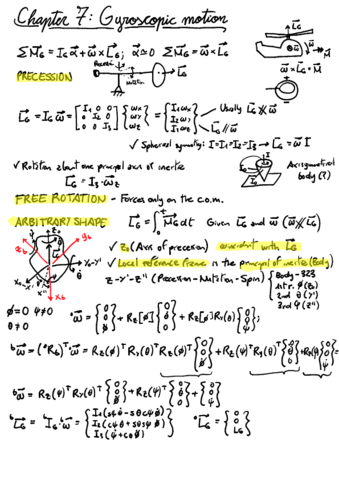 Chapter 7: Gyroscopic motion
ΣM⃗_G = I_G α⃗ + ω⃗ × L⃗_G; α⃗ ≃ 0 ΣM⃗_G = ω⃗ × L⃗_G
PRECESSION
Nutation
L⃗_G
ω⃗ × L⃗_G = M⃗
L⃗_G = I_G ω⃗ = [I₁ 0 0; 0 I₂ 0; 0 0 I₃] {ωx; ωy; ωz} = {I₁ωx; I₂ωy; I₃ωz}
Usually L⃗_G ∦ ω⃗
L⃗_G // ω⃗
✓ Spherical symmetry: I = I₁ = I₂ = I₃ → L⃗_G = ω⃗ I
✓ Rotation about one principal axis of inertia
L⃗_G = I₃ · ω⃗z
Axisymmetrical body (?)
FREE ROTATION - Forces only on the c.o.m.
ARBITRARY SHAPE L⃗_G = ∫₀ᵗ M⃗_G dt Given L⃗_G and ω⃗ (ω⃗ ∦ L⃗_G)
✓ z₀ (Axis of precession) coincident with L⃗_G
✓ Local reference frame is the principal of inertia (Body)
z - y' - z'' (Precession - Nutation - Spin)
Body - 323
1st r. ϕ (z₀)
2nd θ (y')
3rd ψ (z'')
ϕ̇ = 0 ψ̇ ≠ 0
θ̇ ≠ 0
⁰ω⃗ = {0; 0; ϕ̇} + Rz[ϕ] {0; θ̇; 0} + Rz[ϕ] Ry(θ) {0; 0; ψ̇};
ᵇω⃗ = (⁰R_b)ᵀ · ⁰ω⃗ = Rz(ψ)ᵀ Ry(θ)ᵀ Rz(ϕ)ᵀ {0; 0; ϕ̇} + Rz(ψ)ᵀ Ry(θ)ᵀ {0; θ̇; 0} + Rz(ψ)ᵀ {0; 0; ψ̇}
ᵇω⃗ = Rz(ψ)ᵀ Ry(θ)ᵀ {0; 0; ϕ̇} + Rz(ψ)ᵀ {0; θ̇; 0} + {0; 0; ψ̇}
ᵇL⃗_G = ᵇI_G ᵇω⃗ = {I₁(sψ θ̇ - sθcψ ϕ̇); I₂(cψ θ̇ + sθsψ ϕ̇); I₃(ψ̇ + cθ ϕ̇)} ⁰L⃗_G = {0; 0; L_G}